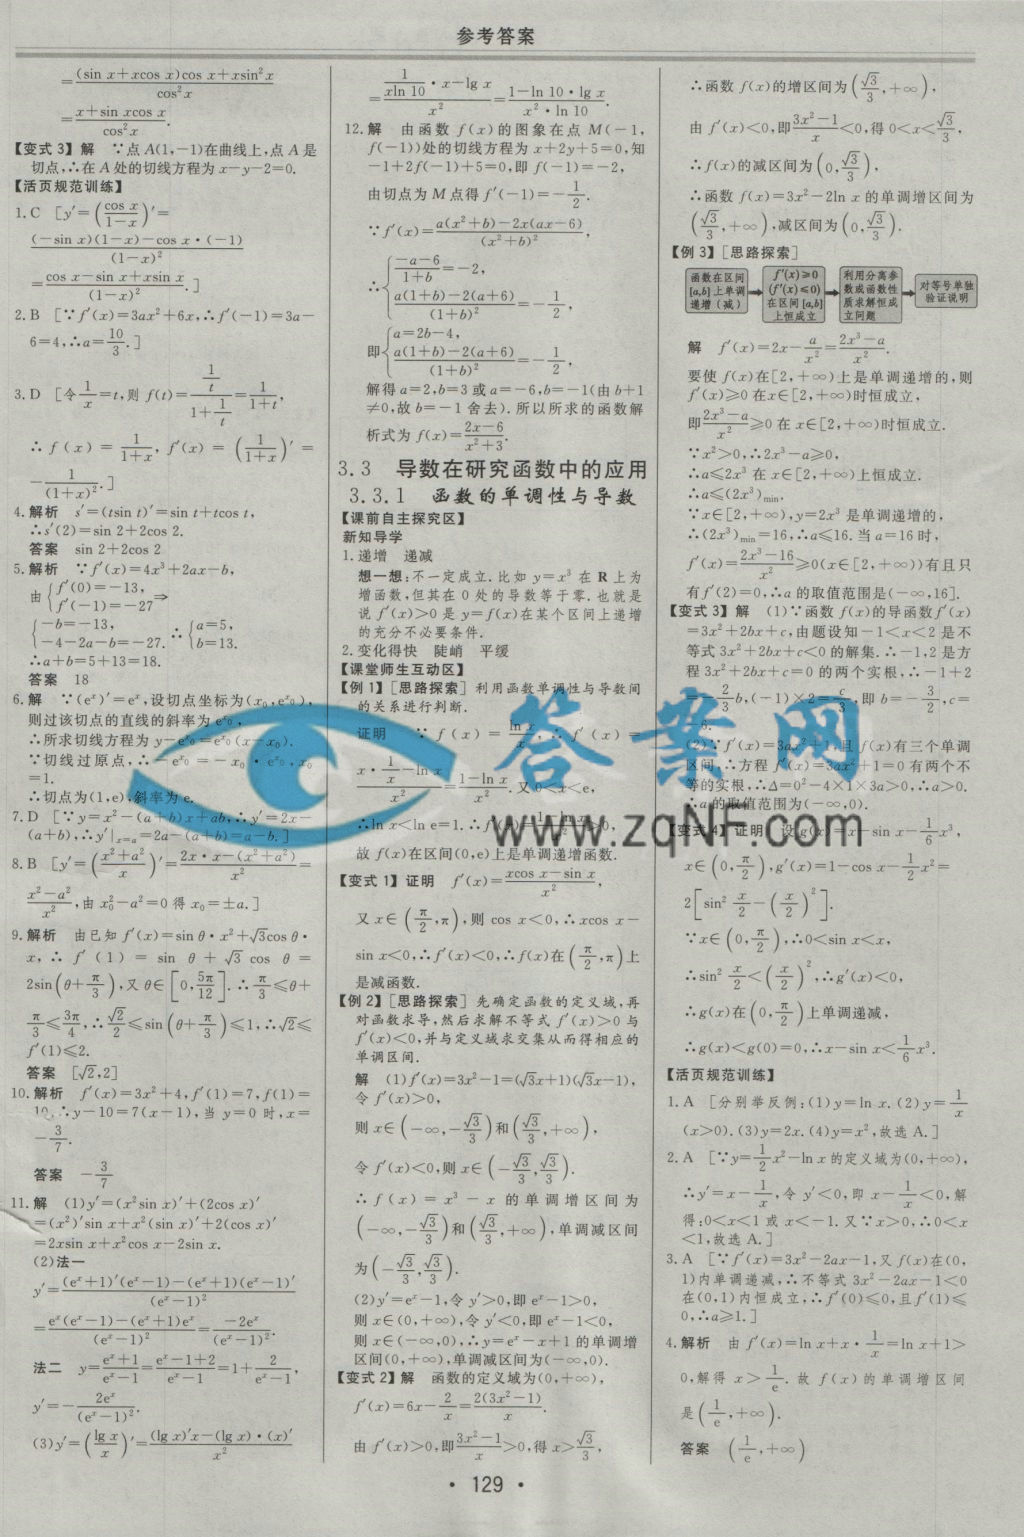 参考答案
=\frac{(sin x+xcos x)cos x+xsin²x}{cos²x}
=\frac{x+sin xcos x}{cos²x}.
【变式3】解 ∵点A(1,-1)在曲线上,点A是
切点,∴在A处的切线方程为x-y-2=0.
【活页规范训练】
1.C [y'=(\frac{cos x}{1-x})'=
\frac{(-sin x)(1-x)-cos x·(-1)}{(1-x)²}
=\frac{cos x-sin x+xsin x}{(1-x)²}.]
2.B [∵f'(x)=3ax²+6x,∴f'(-1)=3a-
6=4,∴a=\frac{10}{3}.]
3.D [令\frac{1}{x}=t,则f(t)=\frac{\frac{1}{t}}{1+\frac{1}{t}}=\frac{1}{1+t},
∴f(x)=\frac{1}{1+x},f'(x)=(\frac{1}{1+x})'=
-\frac{1}{(1+x)²}.]
4.解析 s'=(tsin t)'=sin t+tcos t,
∴s'(2)=sin 2+2cos 2.
答案 sin 2+2cos 2
5.解析 ∵f'(x)=4x³+2ax-b,
由{f'(0)=-13, f'(-1)=-27⇒
{-b=-13, -4-2a-b=-27. ∴{a=5, b=13.
∴a+b=5+13=18.
答案 18
6.解 ∵(eˣ)'=eˣ,设切点坐标为(x₀,e^{x₀}),
则过该切点的直线的斜率为e^{x₀},
∴所求切线方程为y-e^{x₀}=e^{x₀}(x-x₀).
∵切线过原点,∴-e^{x₀}=-x₀·e^{x₀},x₀
=1.
∴切点为(1,e),斜率为e.
7.D [∵y=x²-(a+b)x+ab,∴y'=2x-
(a+b),∴y'|_{x=a}=2a-(a+b)=a-b.]
8.B [y'=(\frac{x²+a²}{x})'=\frac{2x·x-(x²+a²)}{x²}=
\frac{x²-a²}{x²},由x₀²-a²=0得x₀=±a.]
9.解析 由已知f'(x)=sin θ·x²+√3cos θ·
x,∴f'(1)=sin θ+√3 cos θ=
2sin(θ+\frac{π}{3}),又θ∈[0,\frac{5π}{12}].∴\frac{π}{3}≤θ+
\frac{π}{3}≤\frac{3π}{4},∴\frac{√2}{2}≤sin(θ+\frac{π}{3})≤1,∴√2≤
f'(1)≤2.
答案 [√2,2]
10.解析 f'(x)=3x²+4,f'(1)=7,f(1)=
10,∴y-10=7(x-1),当y=0时,x=
-\frac{3}{7}.
答案 -\frac{3}{7}
11.解 (1)y'=(x²sin x)'+(2cos x)'
=(x²)'sin x+x²(sin x)'+2(cos x)'
=2xsin x+x²cos x-2sin x.
(2)法一
y'=\frac{(eˣ+1)'(eˣ-1)-(eˣ+1)(eˣ-1)'}{(eˣ-1)²}
=\frac{eˣ(eˣ-1)-(eˣ+1)eˣ}{(eˣ-1)²}=\frac{-2eˣ}{(eˣ-1)²}.
法二 y=\frac{eˣ+1}{eˣ-1}=\frac{eˣ-1+2}{eˣ-1}=1+\frac{2}{eˣ-1},
y'=-\frac{2eˣ}{(eˣ-1)²}.
(3)y'=(\frac{lg x}{x})'=\frac{(lg x)'x-(lg x)·(x)'}{x²}
=\frac{\frac{1}{xln 10}·x-lg x}{x²}=\frac{1-ln 10·lg x}{x²·ln 10}.
12.解 由函数f(x)的图象在点M(-1,
f(-1))处的切线方程为x+2y+5=0,知
-1+2f(-1)+5=0,即f(-1)=-2,
由切点为M点得f'(-1)=-\frac{1}{2}.
∵f'(x)=\frac{a(x²+b)-2x(ax-6)}{(x²+b)²},
∴{\frac{-a-6}{1+b}=-2, \frac{a(1+b)-2(a+6)}{(1+b)²}=-\frac{1}{2},
即{a=2b-4, \frac{a(1+b)-2(a+6)}{(1+b)²}=-\frac{1}{2},
解得a=2,b=3或a=-6,b=-1(由b+1
≠0,故b=-1舍去).所以所求的函数解
析式为f(x)=\frac{2x-6}{x²+3}.
3.3 导数在研究函数中的应用
3.3.1 函数的单调性与导数
【课前自主探究区】
新知导学
1.递增 递减
想一想:不一定成立.比如y=x³在R上为
增函数,但其在0处的导数等于零.也就是
说f'(x)>0是y=f(x)在某个区间上递增
的充分不必要条件.
2.变化得快 陡峭 平缓
【课堂师生互动区】
【例1】[思路探索] 利用函数单调性与导数间
的关系进行判断.
证明 ∵f(x)=\frac{ln x}{x},∴f'(x)=
\frac{x·\frac{1}{x}-ln x}{x²}=\frac{1-ln x}{x²}.又0<x<e,
∴ln x<ln e=1.∴f'(x)=\frac{1-ln x}{x²}>0,
故f(x)在区间(0,e)上是单调递增函数.
【变式1】证明 f'(x)=\frac{xcos x-sin x}{x²},
又x∈(\frac{π}{2},π),则cos x<0,∴xcos x-
sin x<0,∴f'(x)<0,∴f(x)在(\frac{π}{2},π)上
是减函数.
【例2】[思路探索] 先确定函数的定义域,再
对函数求导,然后求解不等式f'(x)>0与
f'(x)<0,并与定义域求交集从而得相应的
单调区间.
解 (1)f'(x)=3x²-1=(√3x+1)(√3x-1),
令f'(x)>0,
则x∈(-∞,-\frac{√3}{3})和(\frac{√3}{3},+∞),
令f'(x)<0,则x∈(-\frac{√3}{3},\frac{√3}{3}).
∴f(x)=x³-x的单调增区间为
(-∞,-\frac{√3}{3})和(\frac{√3}{3},+∞),单调减区间
为(-\frac{√3}{3},\frac{√3}{3}).
(2)y'=eˣ-1,令y'>0,即eˣ-1>0,
则x∈(0,+∞),令y'<0,即eˣ-1<0,
则x∈(-∞,0),∴y=eˣ-x+1的单调增
区间(0,+∞),单调减区间为(-∞,0).
【变式2】解 函数的定义域为(0,+∞),
f'(x)=6x-\frac{2}{x}=\frac{2(3x²-1)}{x}.
由f'(x)>0,即\frac{3x²-1}{x}>0,得x>\frac{√3}{3},
∴函数f(x)的增区间为(\frac{√3}{3},+∞),
由f'(x)<0,即\frac{3x²-1}{x}<0,得0<x<\frac{√3}{3},
∴f(x)的减区间为(0,\frac{√3}{3}).
∴函数f(x)=3x²-2ln x的单调增区间为
(\frac{√3}{3},+∞),减区间为(0,\frac{√3}{3}).
【例3】[思路探索]
函数在区间[a,b]上单调递增(减)→f'(x)≥0(f'(x)≤0)在区间[a,b]上恒成立→利用分离参数或函数性质求解恒成立问题→对等号单独验证说明
解 f'(x)=2x-\frac{a}{x²}=\frac{2x³-a}{x²}.
要使f(x)在[2,+∞)上是单调递增的,则
f'(x)≥0在x∈[2,+∞)时恒成立,
即\frac{2x³-a}{x²}≥0在x∈[2,+∞)时恒成立.
∵x²>0,∴2x³-a≥0,
∴a≤2x³在x∈[2,+∞)上恒成立.
∴a≤(2x³)_{min}.
∵x∈[2,+∞),y=2x³是单调递增的,
∴(2x³)_{min}=16,∴a≤16.当a=16时,
f'(x)=\frac{2x³-16}{x²}≥0(x∈[2,+∞))有且只
有f'(2)=0,∴a的取值范围是(-∞,16].
【变式3】解 (1)∵函数f(x)的导函数f'(x)
=3x²+2bx+c,由题设知-1<x<2是不
等式3x²+2bx+c<0的解集.∴-1,2是方
程3x²+2bx+c=0的两个实根,∴-1+2
=-\frac{2}{3}b,(-1)×2=\frac{c}{3},即b=-\frac{3}{2},c=
-6.
(2)∵f'(x)=3ax²+1,且f(x)有三个单调
区间,∴方程f'(x)=3ax²+1=0有两个不
等的实根,∴Δ=0²-4×1×3a>0,∴a>0.
∴a的取值范围为(-∞,0).
【变式4】证明 设g(x)=x-sin x-\frac{1}{6}x³,
x∈(0,\frac{π}{2}),g'(x)=1-cos x-\frac{1}{2}x²=
2[sin²\frac{x}{2}-(\frac{x}{2})²].
∵x∈(0,\frac{π}{2}),∴0<sin x<x,
∴sin²\frac{x}{2}<(\frac{x}{2})²,∴g'(x)<0,
∴g(x)在(0,\frac{π}{2})上单调递减,
∴g(x)<g(0)=0,∴x-sin x<\frac{1}{6}x³.
【活页规范训练】
1.A [分别举反例:(1)y=ln x.(2)y=\frac{1}{x}
(x>0).(3)y=2x.(4)y=x²,故选A.]
2.A [∵y=\frac{1}{2}x²-ln x的定义域为(0,+∞),
∴y'=x-\frac{1}{x},令y'<0,即x-\frac{1}{x}<0,解
得:0<x<1或x<-1.又∵x>0,∴0<x
<1,故选A.]
3.A [∵f'(x)=3x²-2ax-1,又f(x)在(0,
1)内单调递减,∴不等式3x²-2ax-1<0
在(0,1)内恒成立,∴f'(0)≤0,且f'(1)≤
0,∴a≥1.]
4.解析 由f'(x)=ln x+x·\frac{1}{x}=ln x+1>
0,解得x>\frac{1}{e}.故f(x)的单调增区间
是(\frac{1}{e},+∞).
答案 (\frac{1}{e},+∞)
答案网
www.zqNF.com
·129·